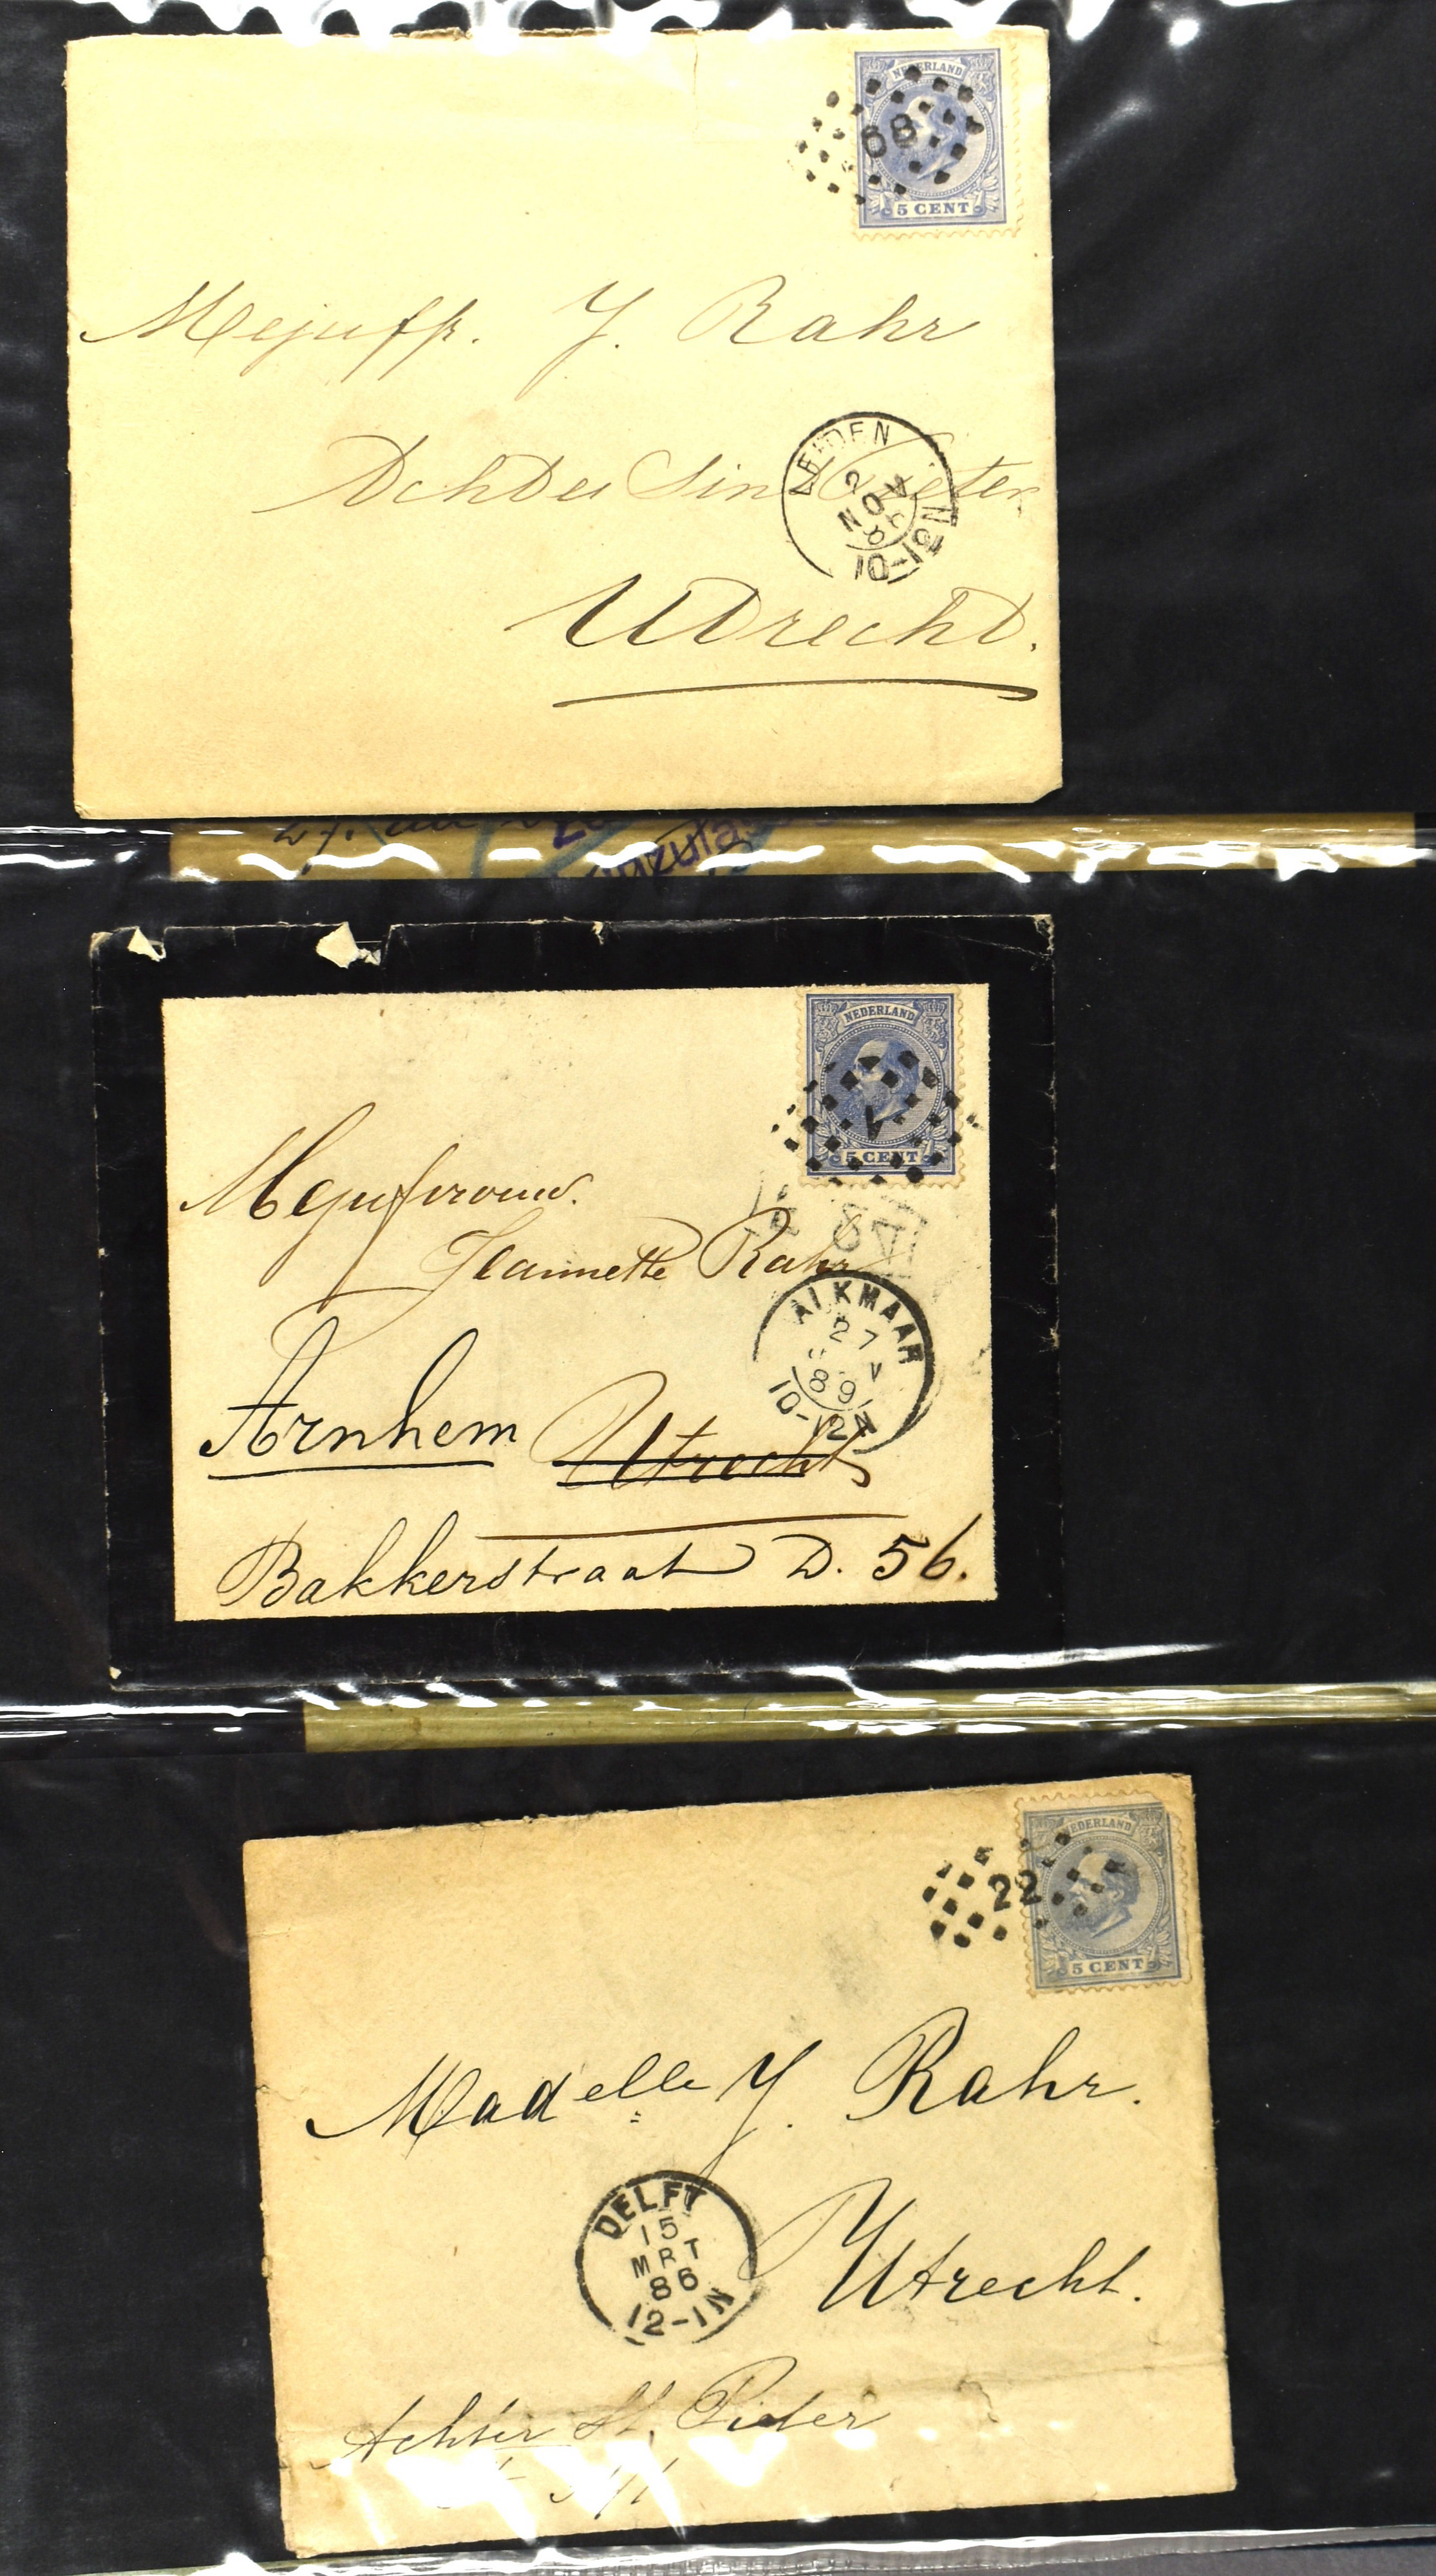 NEDERLAND
68
5 CENT
Mejuffr. J. Rahr
Achter Sint Pieter
LEIDEN
2 NOV
10-12N
Utrecht.
NEDERLAND
5 CENT
Mejufvrouw.
Jeannette Rahr
ALKMAAR
27
89
10-12N
Arnhem Utrecht
Bakkerstraat D. 56.
NEDERLAND
22
5 CENT
Madelle J. Rahr.
DELFT
15
MRT
86
12-1N
Utrecht.
Achter St. Pieter